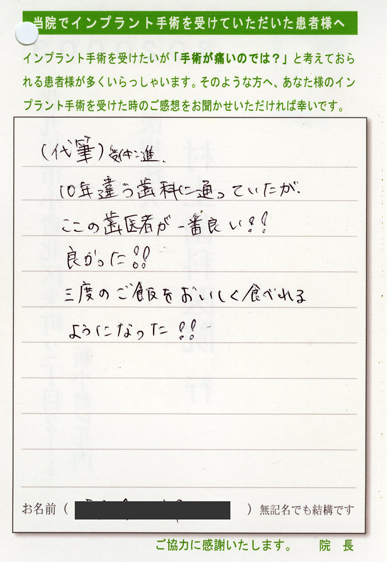 当院でインプラント手術を受けていただいた患者様へ
インプラント手術を受けたいが「手術が痛いのでは?」と考えておら
れる患者様が多くいらっしゃいます。そのような方へ、あなた様のイン
プラント手術を受けた時のご感想をお聞かせいただければ幸いです。
(代筆)
10年違う歯科に通っていたが、
ここの歯医者が一番良い!!
良かった!!
三度のご飯をおいしく食べれる
ようになった!!
お名前( )無記名でも結構です
ご協力に感謝いたします。 院 長